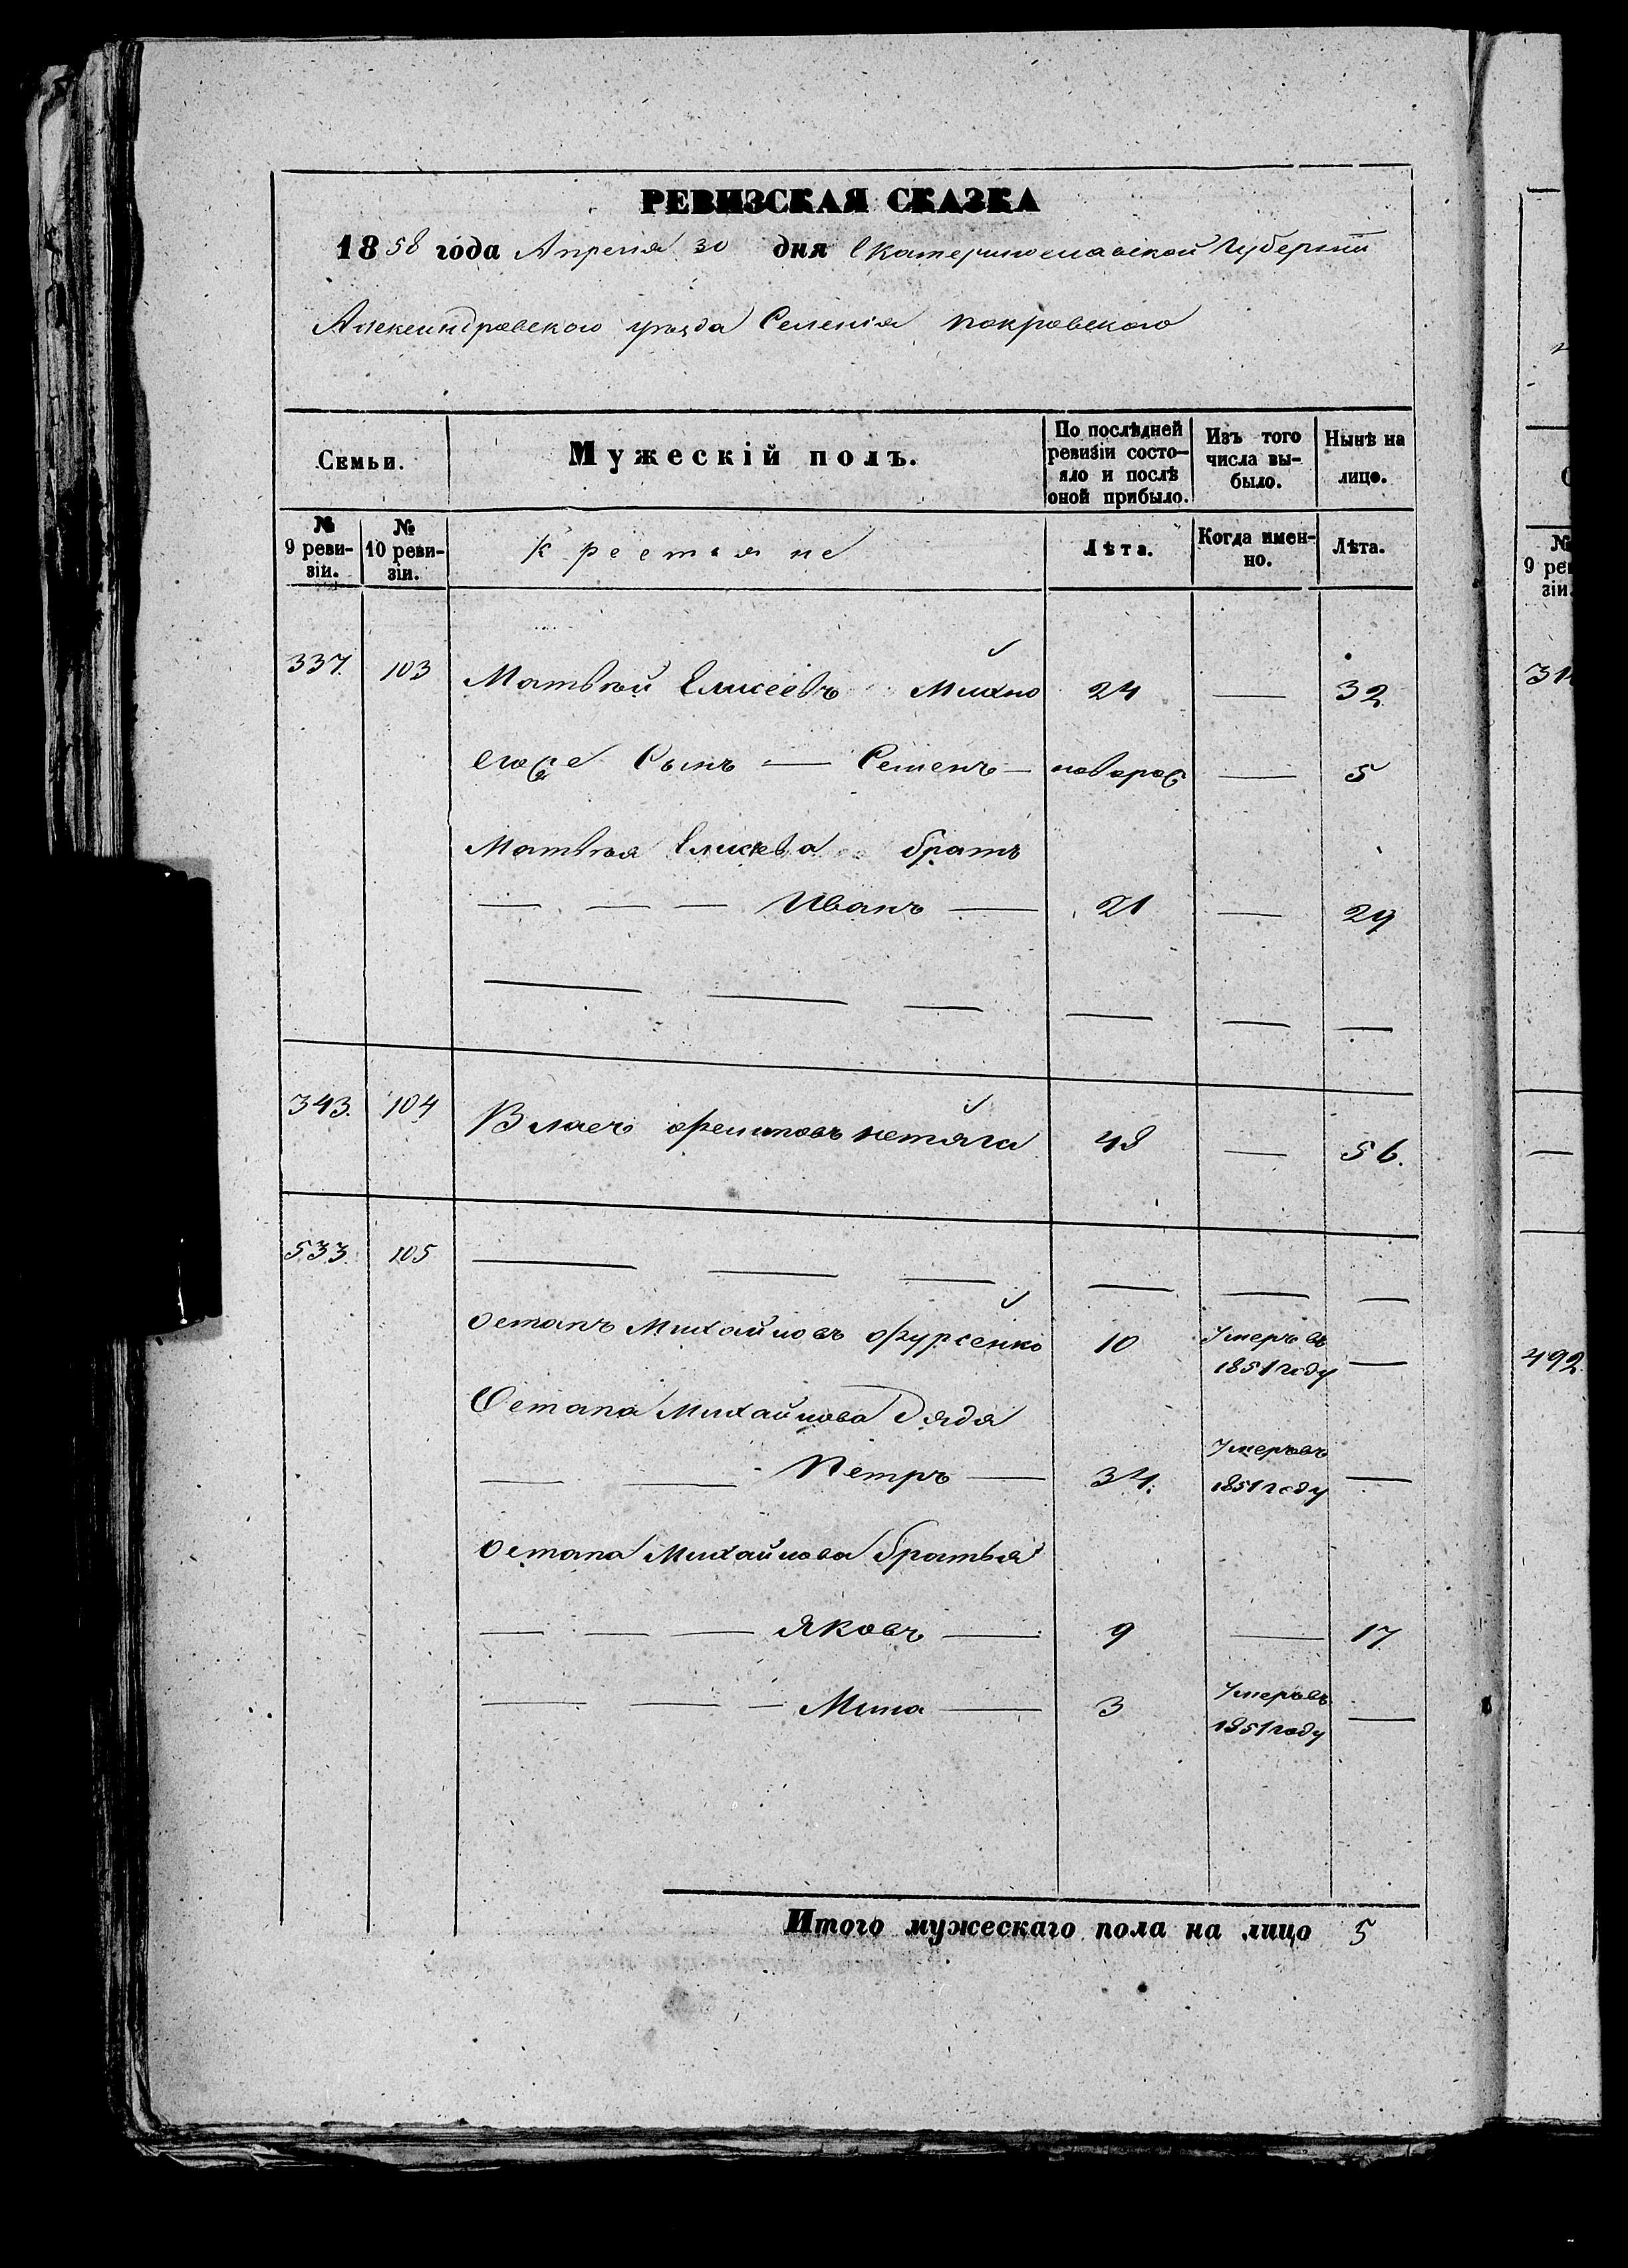 РЕВИЗСКАЯ СКАЗКА
1858 года Апреля 30 дня Екатеринославской Губернiи
Александровскаго уѣзда Селенiя покровскаго
Семьи. Мужескiй полъ. По послѣдней ревизiи состо- яло и послѣ оной прибыло. Изъ того числа вы- было. Нынѣ на лицо.
№ 9 реви- зiи. № 10 реви- зiи. Крестьяне Лѣта. Когда имен- но. Лѣта.
337. 103 Матвѣй Елисеевъ Михно 24 — 32
егоже Сынъ — Семенъ — новорож — 5
Матвѣя Елисѣева братъ
— — — Иванъ — 21 — 29
— — — — — —
343. 104 Власъ Филиповъ нетяга 48 — 56.
533. 105 — — — — — —
Остапъ Михайловъ Фурсенко 10 Умеръ въ 1851 году —
Остапа Михайлова Дядя
— — Петръ — 34. Умеръ въ 1851 году —
Остапа Михайлова братья
— — — Яковъ — 9 — 17
— — — Мина — 3 Умеръ въ 1851 году —
Итого мужескаго пола на лицо 5
№ 9 ре зiи.
492.